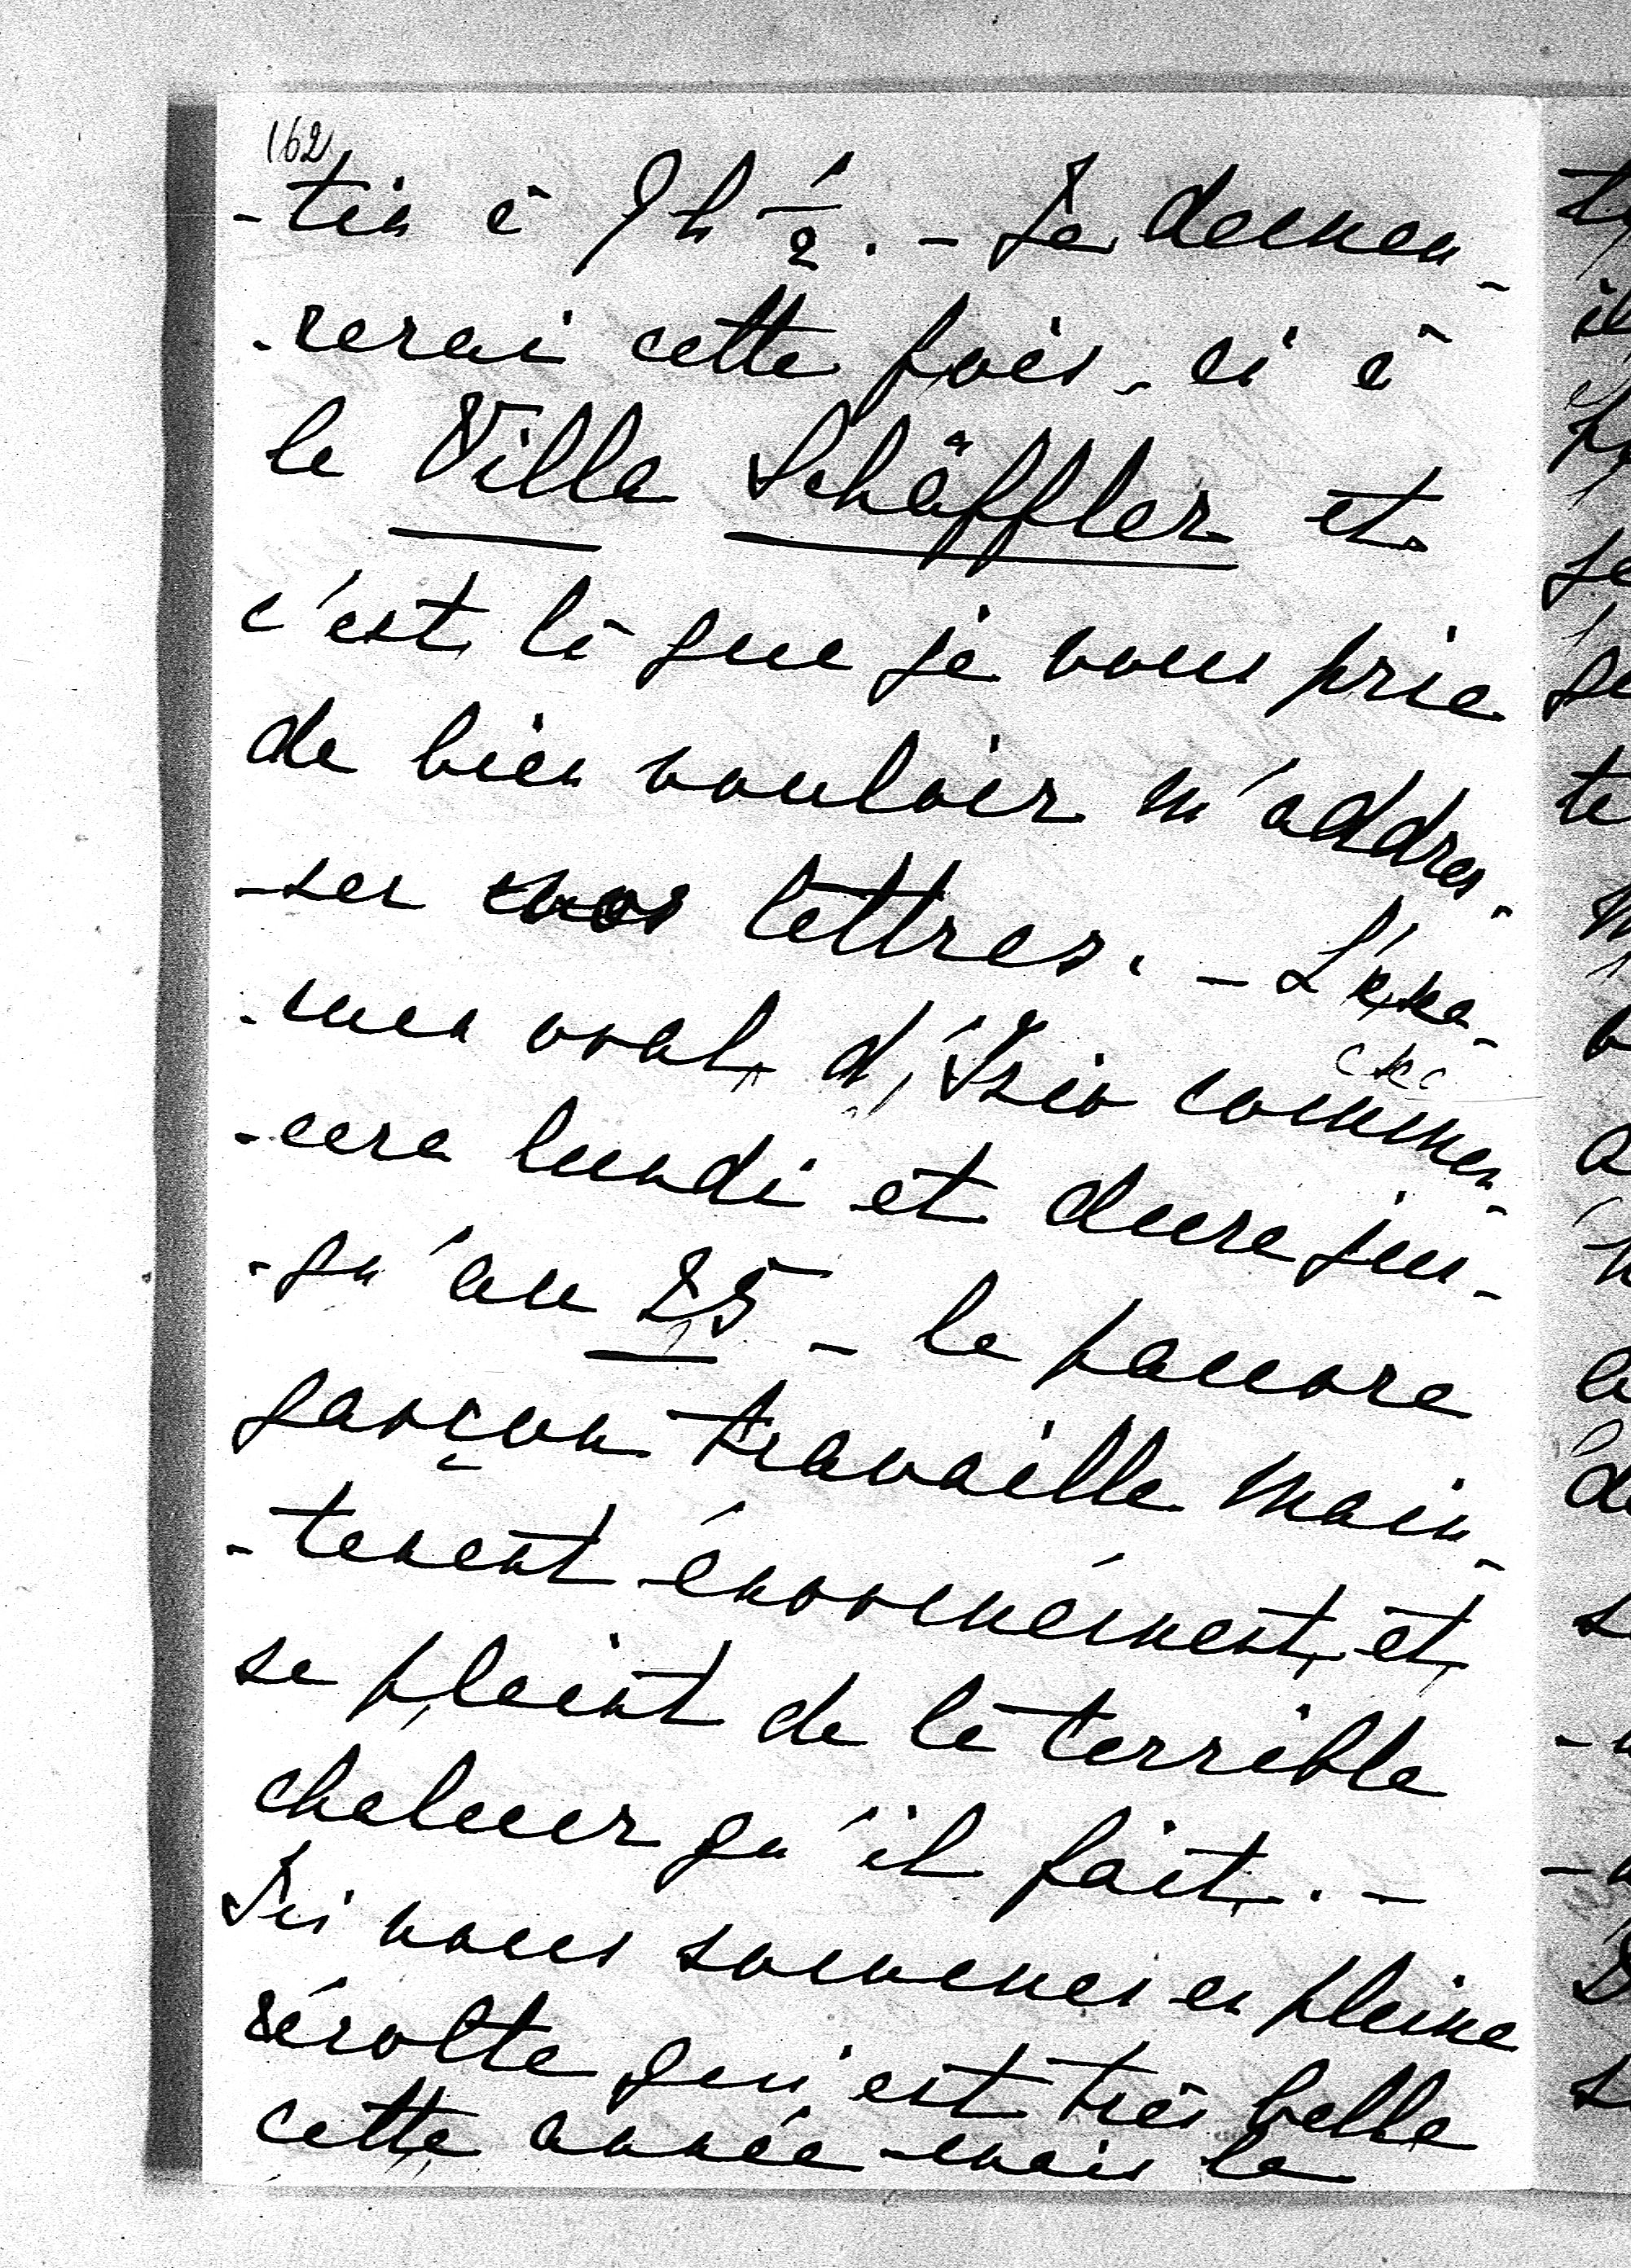 162
-tin à 9 h ½. - Je demeu-
-rerai cette fois-ci à
la Villa Schäffler et
c'est là que je vous prie
de bien vouloir m'addres-
-ser vos lettres. - L'exa-
-men oral d'Isio commen-
-cera lundi et dure jus-
-qu'au 25 - le pauvre
garçon travaille main-
-tenant énormément et
se plaint de la terrible
chaleur qu'il fait. -
Ici nous sommes en pleine
récolte qui est très belle
cette année - mais la